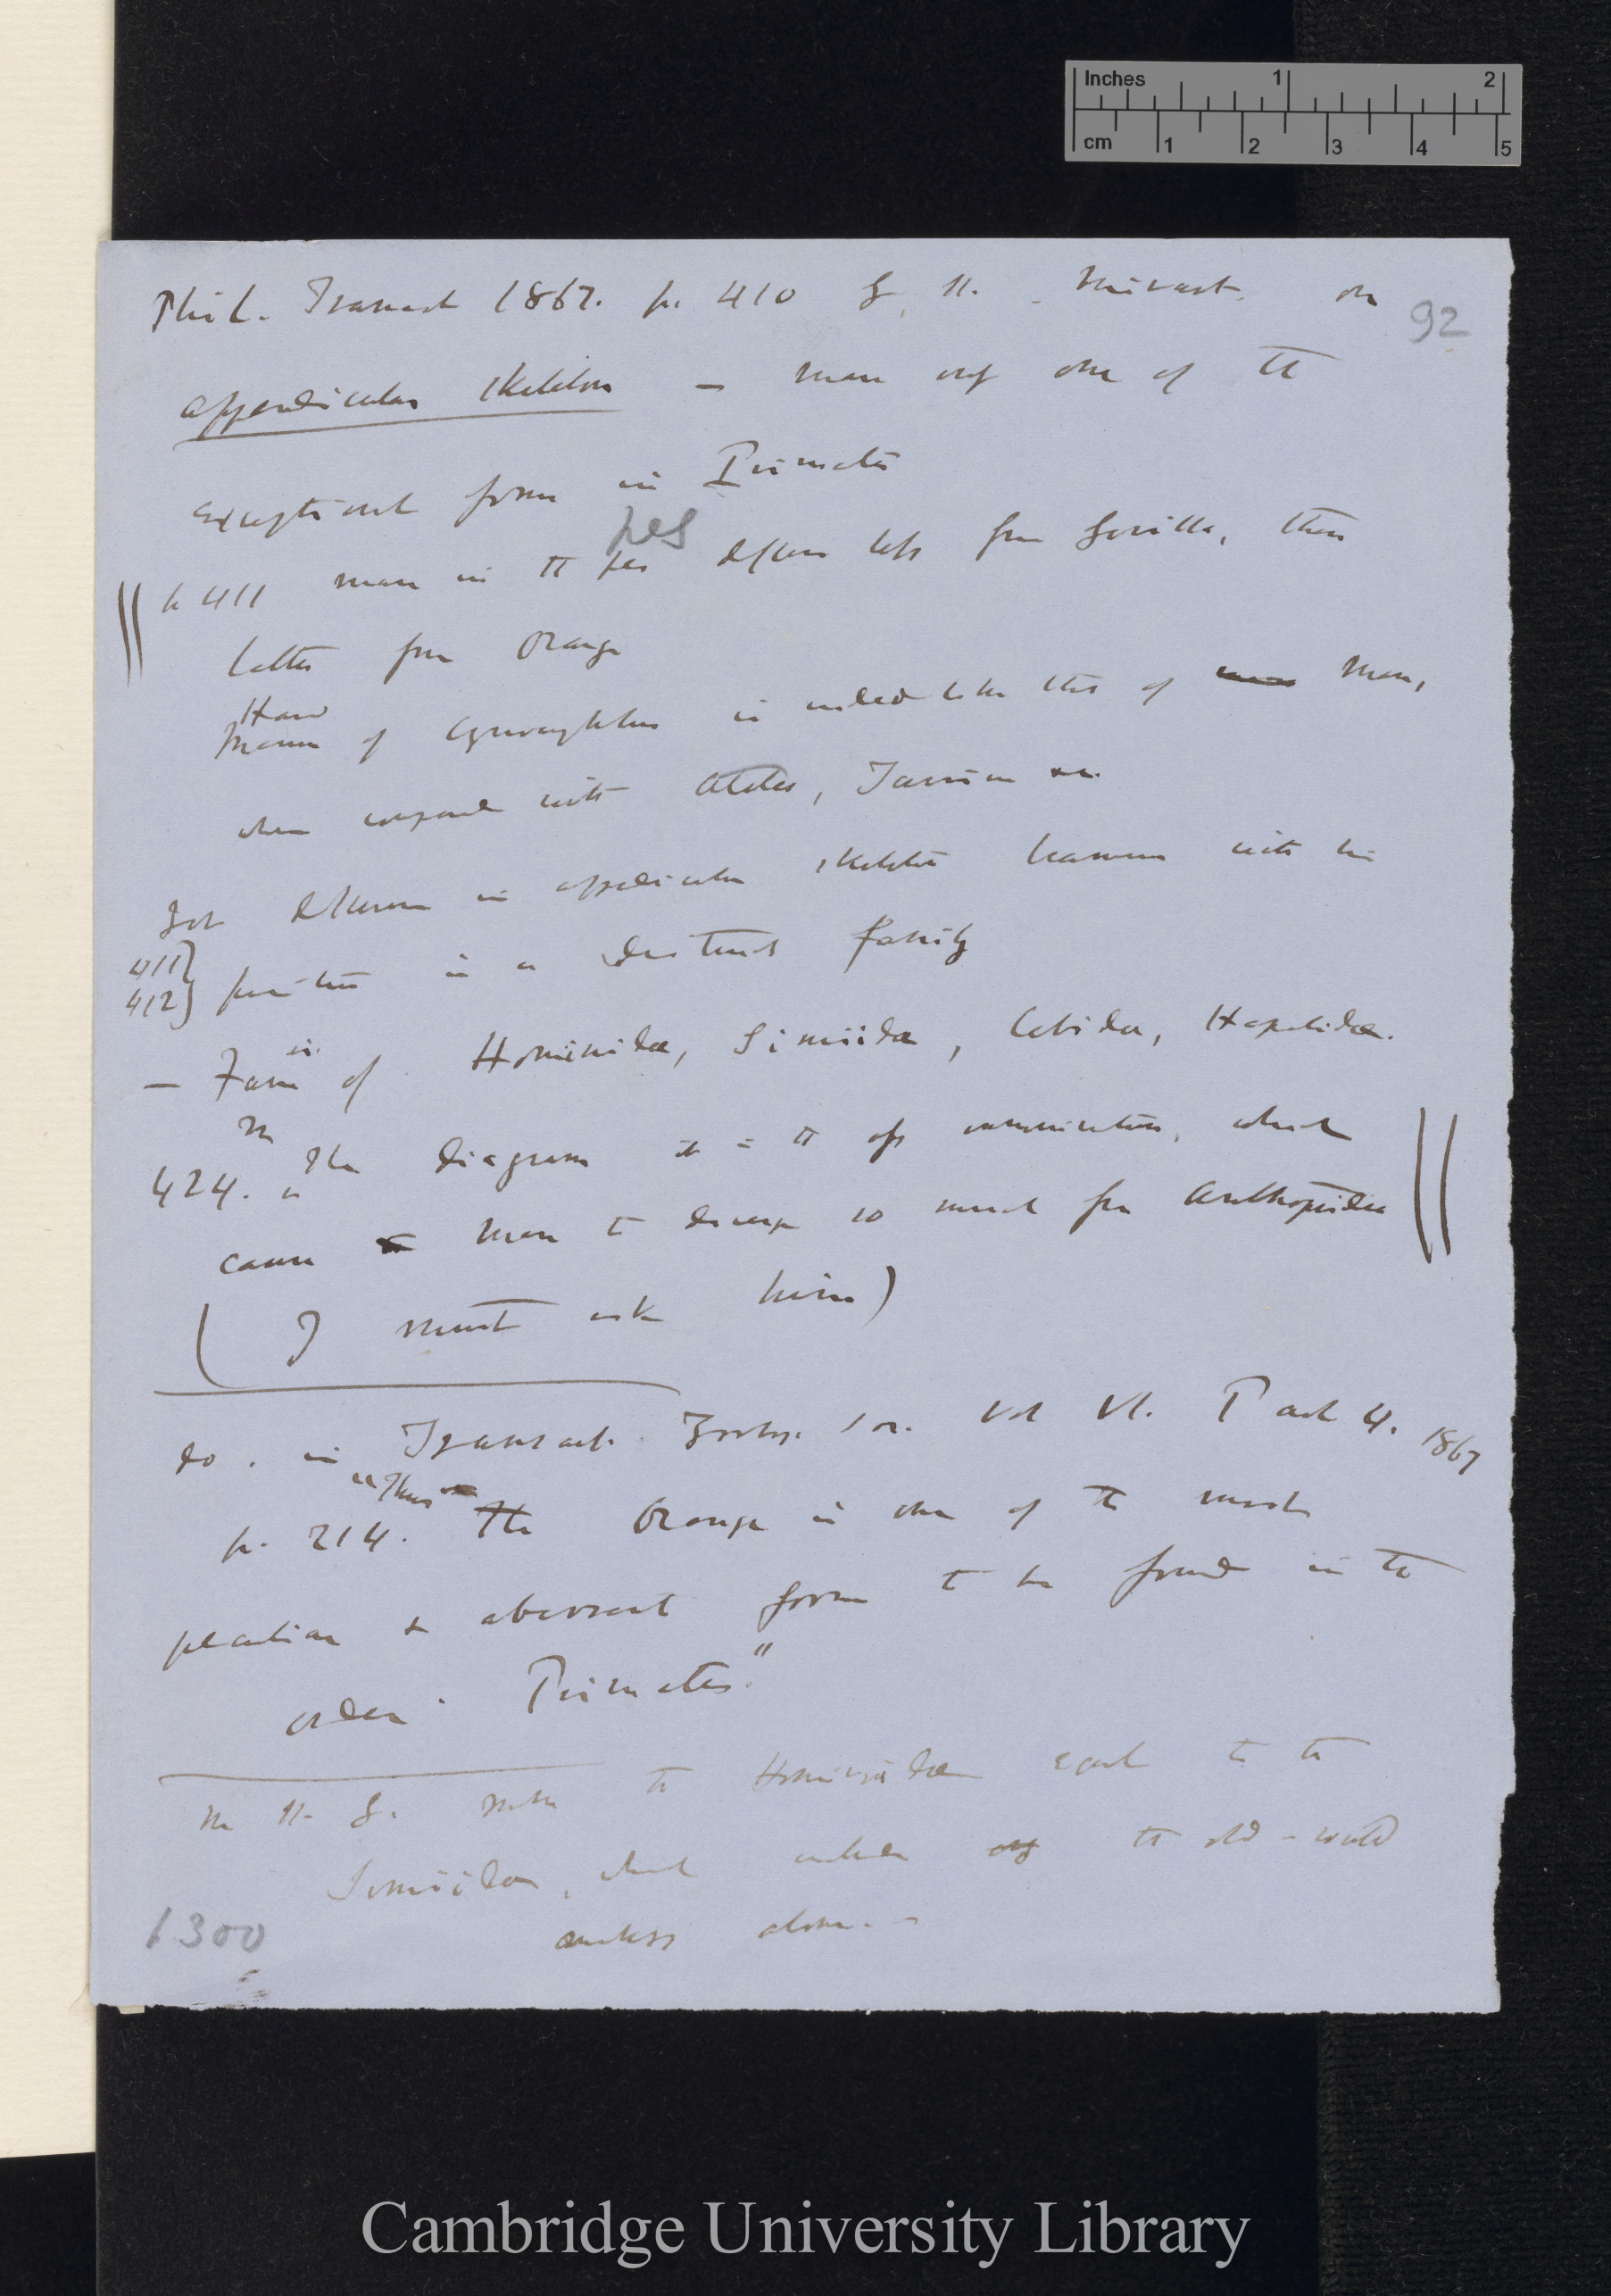 Inches 1 2
cm 1 2 3 4 5
Phil. Transact 1867. p. 410 St. G. Mivart. on
92
appendicular skeleton — man only one of the
exceptional forms in Primates
pes
p 411 man in the pes differs less from Gorilla, than
latter from Orange
Hand
Manus of is indeed like that of Man,
when compared with Ateles, Tarsius &c.
differences in appendicular skeleton with his
411
412
position in a distinct family
— Fam of Hominidæ, Simiidæ, Cebidæ, Hapalidæ.
424. In the diagram it is the opp which
cause man to diverge so much from
( I must ask him)
do. in Transact. Zoolog. Soc. Vol VI. Part 4. 1867
p. 214. "Thus the Orange is one of the most
peculiar & aberrant forms to be found in the
order. Primates."
Mr St. G. makes the Hominidæ equal to the
Simiidæ, which includes only the old-world
monkeys alone. —
1300
Cambridge University Library